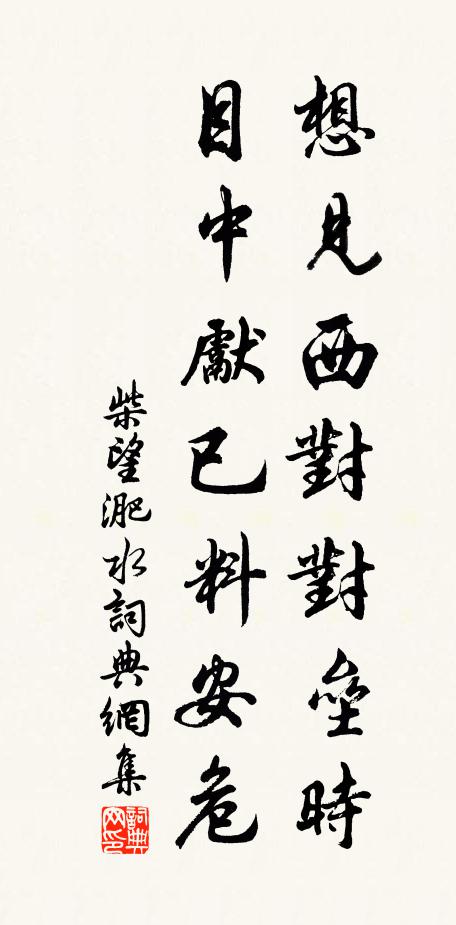 想見西對對壘時
目中獻已料安危
柴望淝水詞典網集
詞典网印